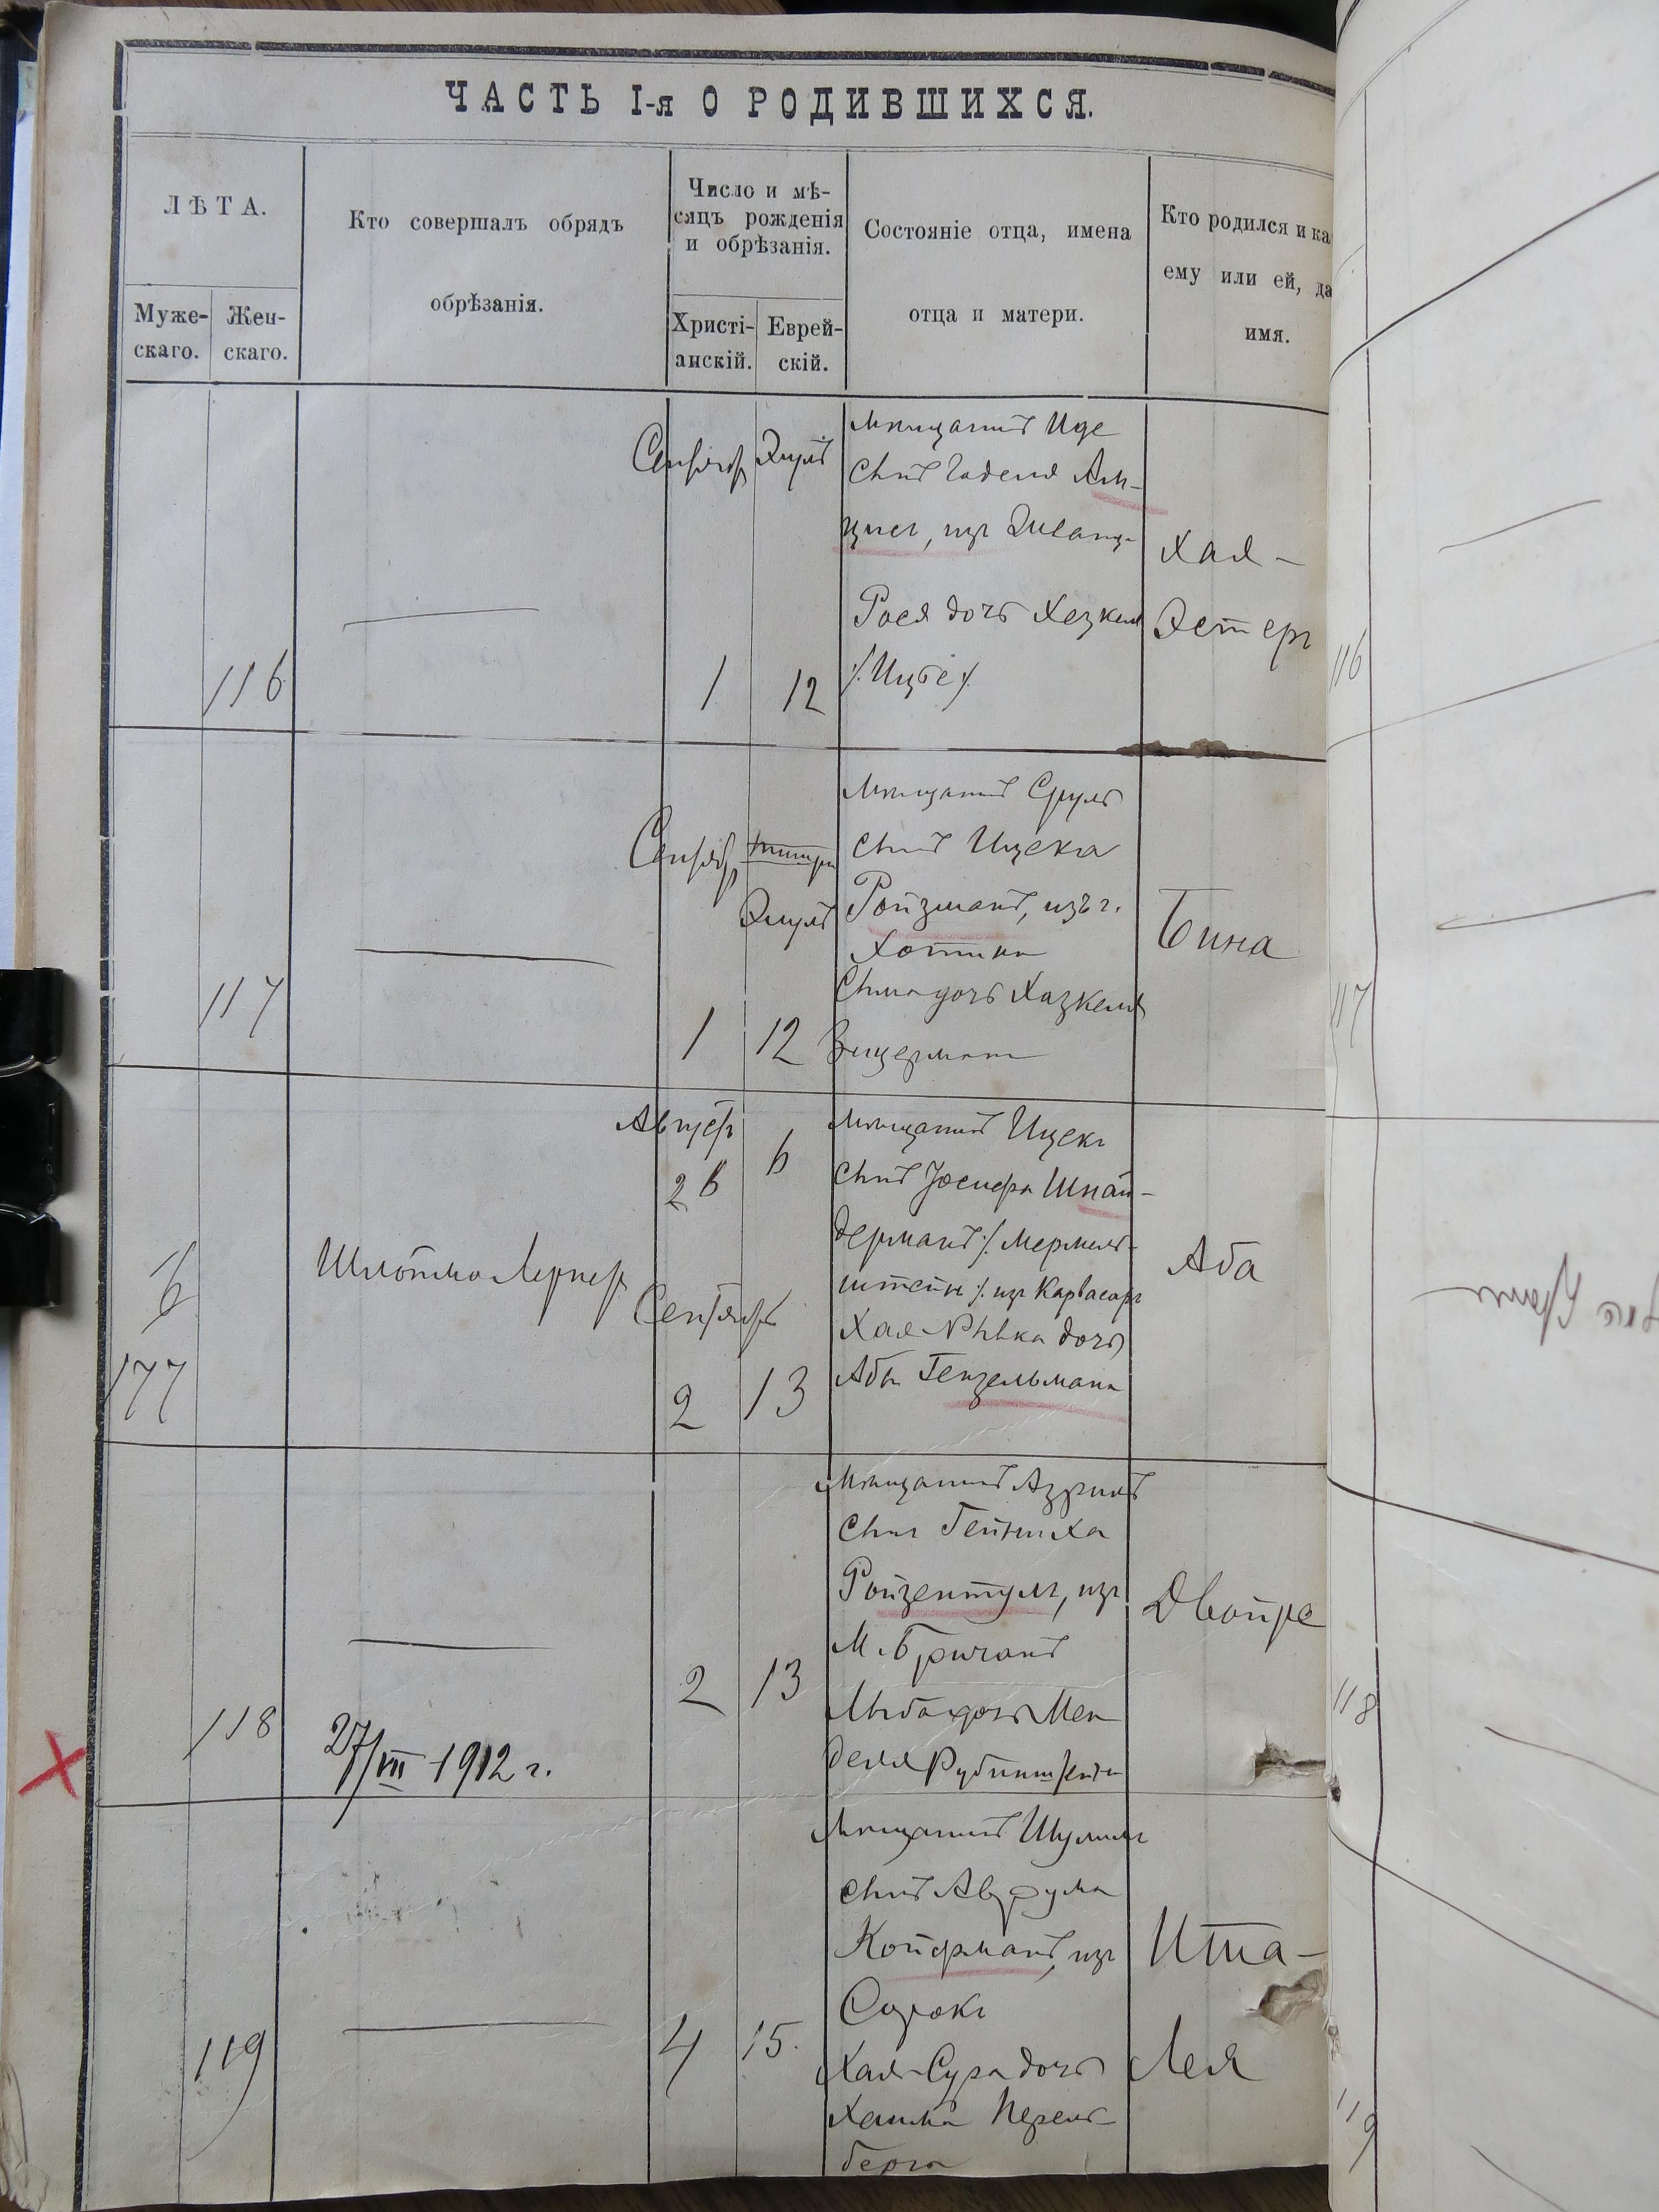 ЧАСТЬ I-я О РОДИВШИХСЯ.
ЛѢТА.
Муже-
скаго.
Жен-
скаго.
Кто совершалъ обрядъ
обрѣзанія.
Число и мѣ-
сяцъ рожденія
и обрѣзанія.
Христі-
анскій.
Еврей-
скій.
Состояніе отца, имена
отца и матери.
Кто родился и ка
ему или ей, да
имя.
116
Сентябр
1
Элулъ
12
мѣщанинъ Иде
сынъ Годеля Ам-
цисъ, изъ Жванц
Рося дочь Хезкеля
Хая-
Эстеръ
116
117
Сентябр
1
Элулъ
12
мѣщанинъ Сруль
сынъ Ицека
Ройзманъ, изъ г.
Хотина
Сима дочь Хазкеля
Бина
117
6
177
Шлойма Лернер
Август
26
6
Сентябрь
2
13
мѣщанинъ Ицекъ
сынъ Іосифа Шнай-
дерманъ /. Мермель-
штейнъ ./ изъ Карвасаръ
Хая-Рывка дочь
Абы Гензельмана
Аба
118
27/VII 1912 г.
2
13
мѣщанинъ Азриль
сынъ Гейниха
Ройзентулъ, изъ
М. Бричанъ
Люба дочь Мен
деля Рубинштейна
Двойре
118
119
4
15.
мѣщанинъ Шулимъ
сынъ Аврума
Койфманъ, изъ
Сорокъ
Хая-Сура дочь
Хаима Перель
берга
Ита-
Лея
119